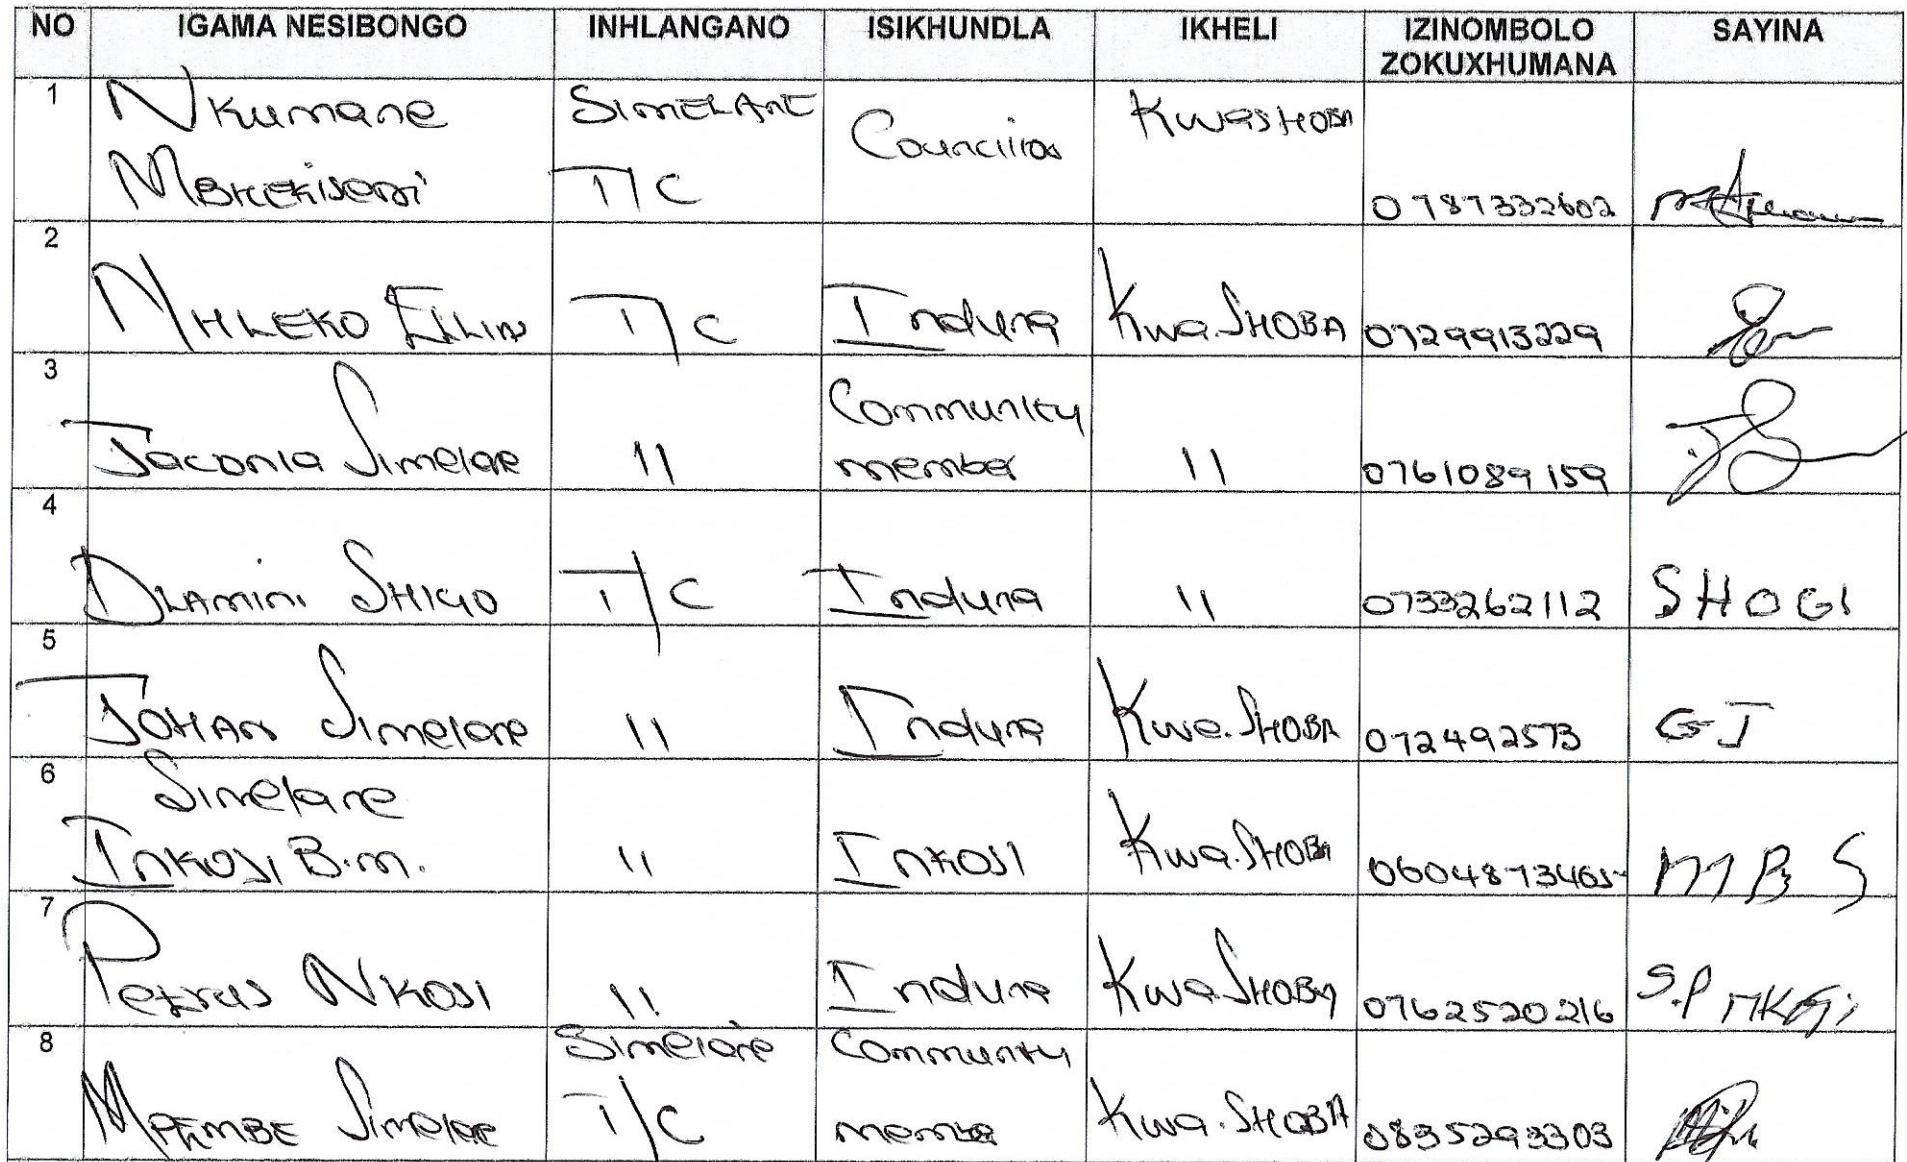 NO IGAMA NESIBONGO INHLANGANO ISIKHUNDLA IKHELI IZINOMBOLO ZOKUXHUMANA SAYINA
1 Nkumane Mbhekiseni SIMELANE T/C Councillor KwaSHOBA 0787332602
2 MHLEKO ELLIN T/C Induna Kwa.SHOBA 0729913229
3 Jaconia Simelane 11 Community member 11 0761089159
4 DLAMINI SHIGO T/C Induna 11 0733262112 SHOGI
5 JOHAN Simelane 11 Induna Kwa.SHOBA 072492573 GJ
6 Simelane INKOSI B.M. 11 INKOSI Kwa.SHOBA MBS
7 Petrus NKOSI 11 Induna Kwa.SHOBA 0762520216 S.P NKOSI
8 MPEMBE Simelane Simelane T/C Community member Kwa.SHOBA 0835293303